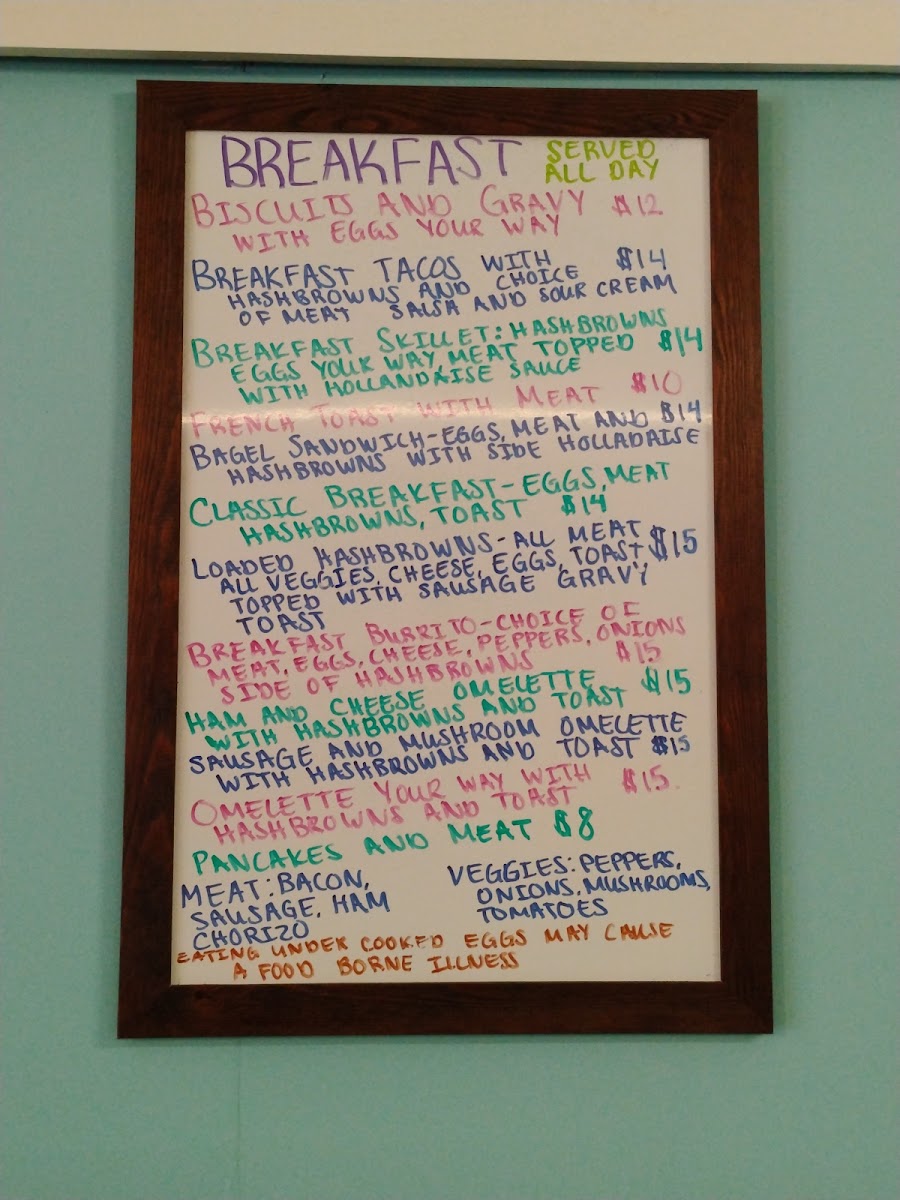 BREAKFAST SERVED ALL DAY
BISCUITS AND GRAVY $12
WITH EGGS YOUR WAY
BREAKFAST TACOS WITH $14
HASHBROWNS AND CHOICE
OF MEAT SALSA AND SOUR CREAM
BREAKFAST SKILLET: HASHBROWNS
EGGS YOUR WAY, MEAT TOPPED $14
WITH HOLLANDAISE SAUCE
FRENCH TOAST WITH MEAT $10
BAGEL SANDWICH-EGGS, MEAT AND $14
HASHBROWNS WITH SIDE HOLLADAISE
CLASSIC BREAKFAST-EGGS, MEAT
HASHBROWNS, TOAST $14
LOADED HASHBROWNS-ALL MEAT $15
ALL VEGGIES, CHEESE, EGGS, TOAST,
TOPPED WITH SAUSAGE GRAVY
TOAST
BREAKFAST BURRITO-CHOICE OF
MEAT, EGGS, CHEESE, PEPPERS, ONIONS
SIDE OF HASHBROWNS $15
HAM AND CHEESE OMELETTE $15
WITH HASHBROWNS AND TOAST
SAUSAGE AND MUSHROOM OMELETTE
WITH HASHBROWNS AND TOAST $15
OMELETTE YOUR WAY WITH $15
HASHBROWNS AND TOAST
PANCAKES AND MEAT $8
MEAT: BACON,
SAUSAGE, HAM
CHORIZO
VEGGIES: PEPPERS,
ONIONS, MUSHROOMS,
TOMATOES
EATING UNDER COOKED EGGS MAY CAUSE
A FOOD BORNE ILLNESS